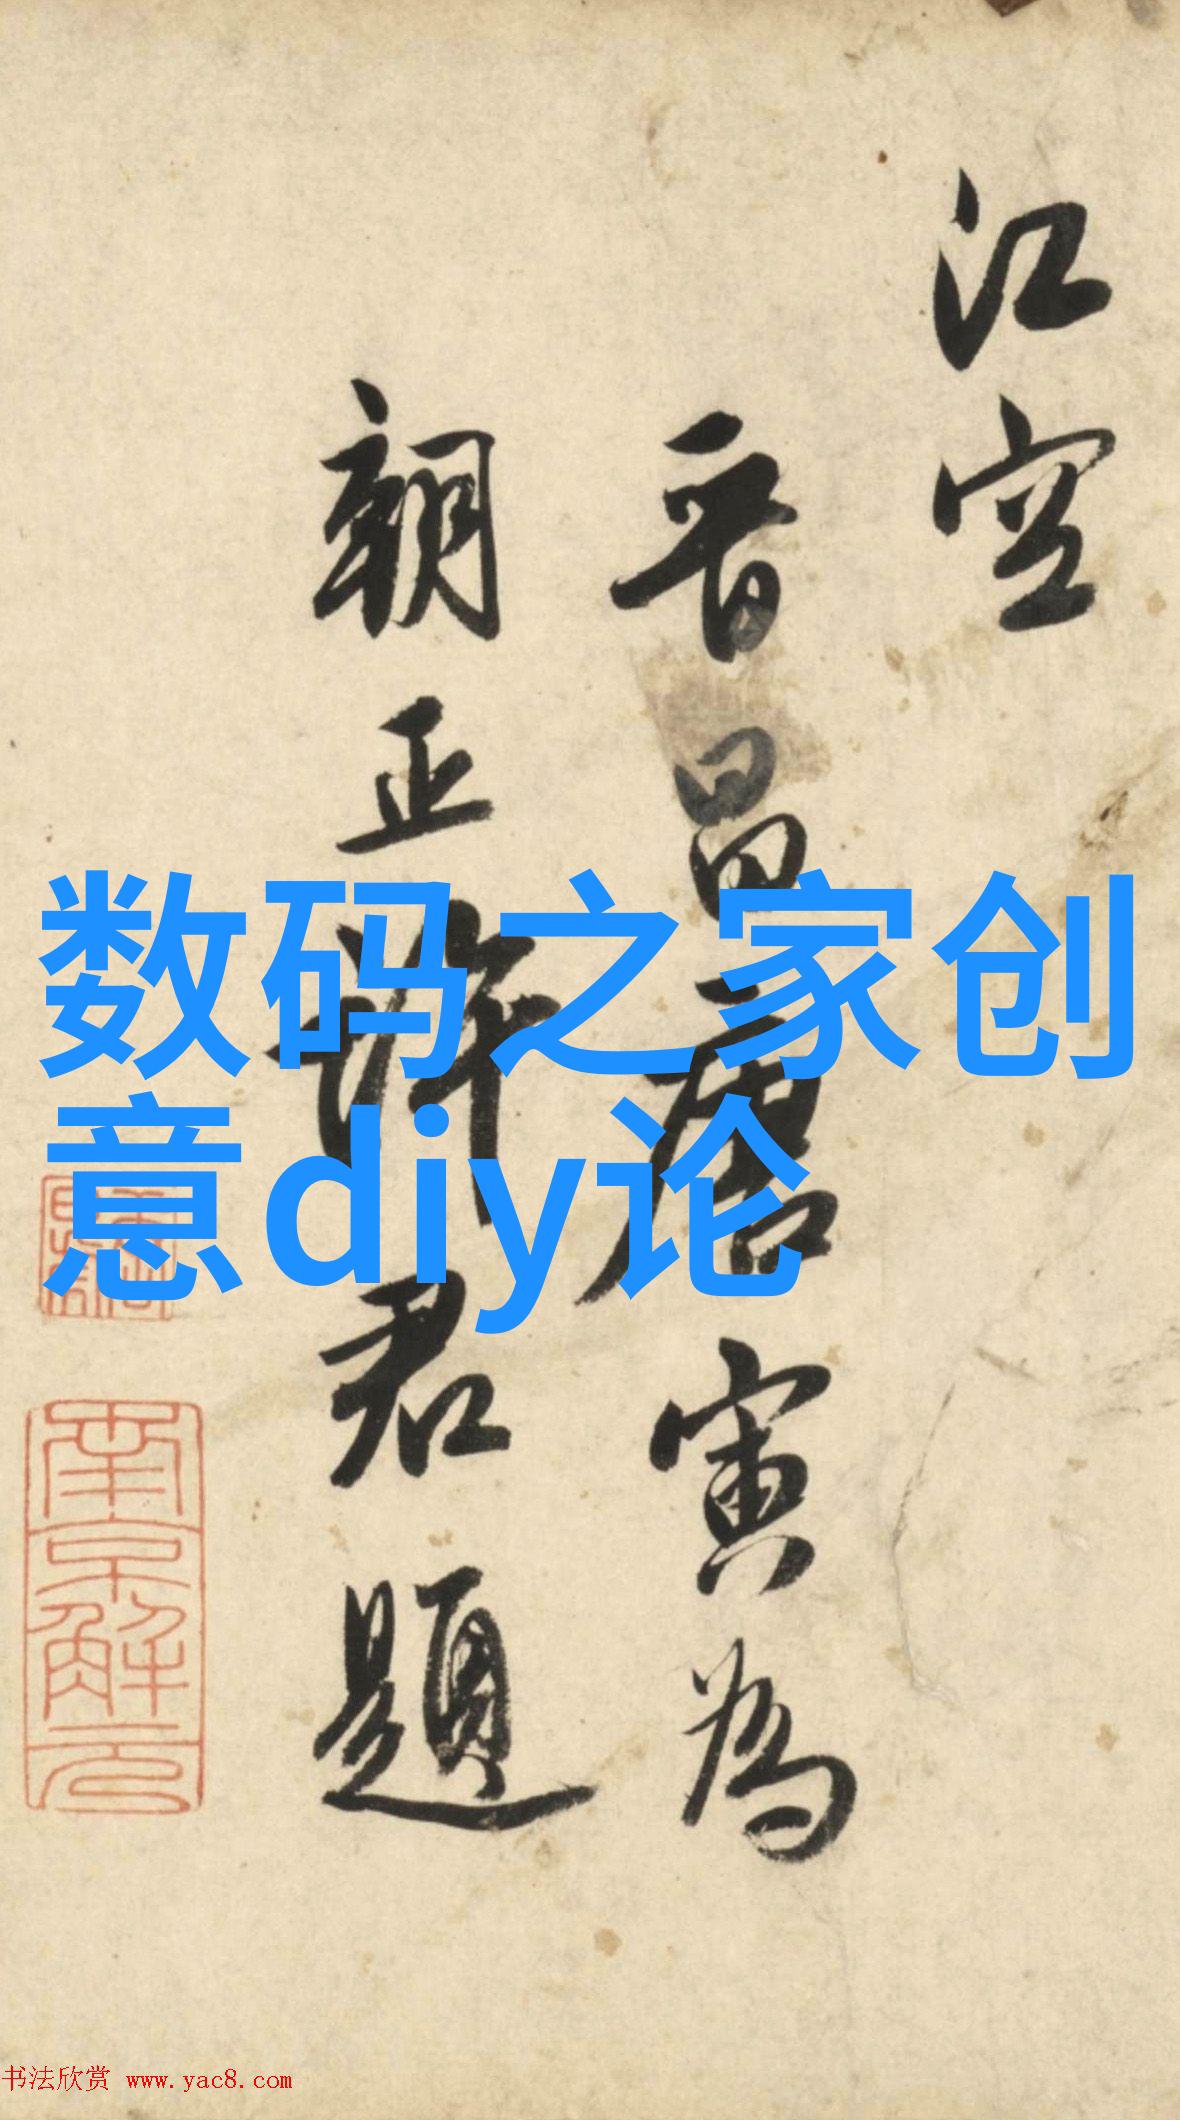 江空
晋昌唐寅為
朝正許君題
数码之家创
意diy论
南京解元
书法欣赏 www.yac8.com